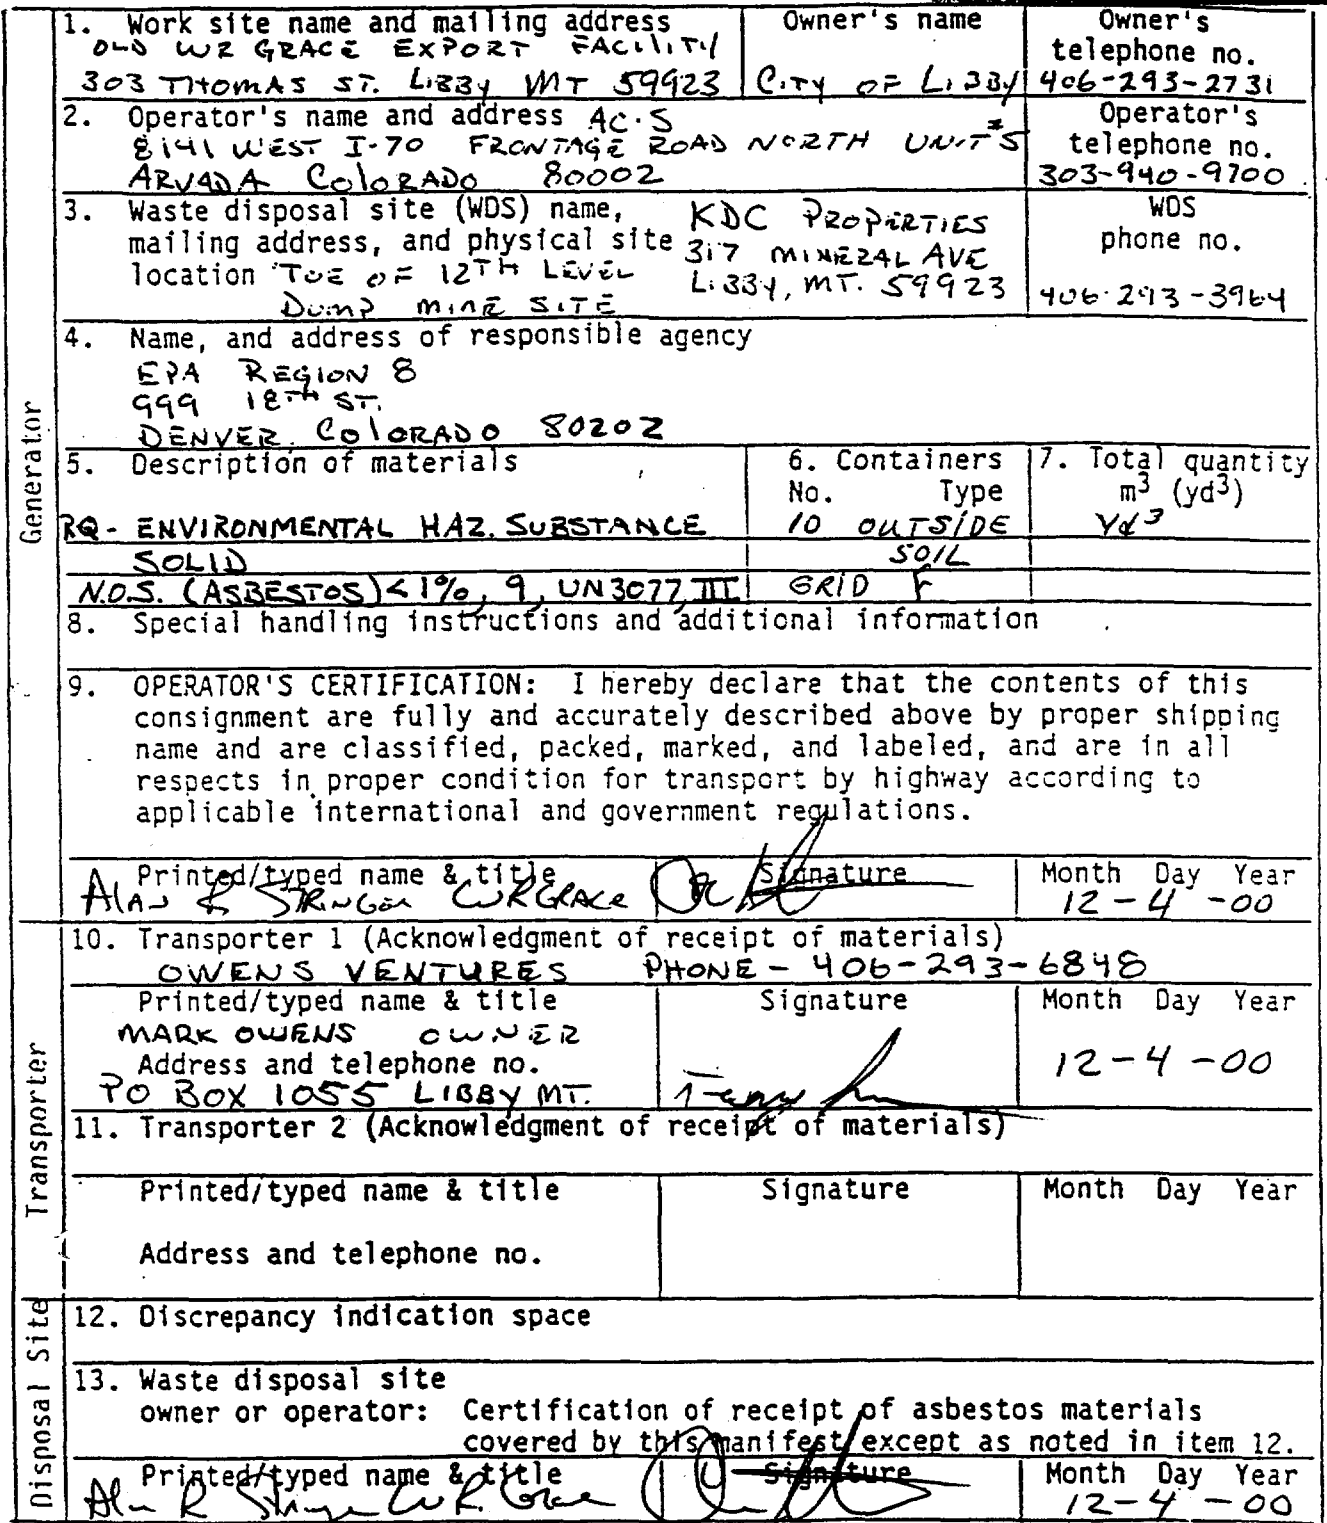 Generator
1. Work site name and mailing address
OLD WR GRACE EXPORT FACILITY
303 THOMAS ST. LIBBY MT 59923
Owner's name
CITY OF LIBBY
Owner's
telephone no.
406-293-2731
2. Operator's name and address AC·S
8141 WEST I-70 FRONTAGE ROAD NORTH UNIT #5
ARVADA COLORADO 80002
Operator's
telephone no.
303-940-9700
3. Waste disposal site (WDS) name,
mailing address, and physical site
location TOE OF 12TH LEVEL
DUMP MINE SITE
KDC PROPERTIES
317 MINERAL AVE
LIBBY, MT. 59923
WDS
phone no.
406-293-3964
4. Name, and address of responsible agency
EPA REGION 8
999 18TH ST.
DENVER COLORADO 80202
5. Description of materials
6. Containers
No. Type
7. Total quantity
m3 (yd3)
RQ - ENVIRONMENTAL HAZ. SUBSTANCE
10 OUTSIDE
Yd3
SOLID
SOIL
N.O.S. (ASBESTOS) < 1%, 9, UN3077, III
GRID F
8. Special handling instructions and additional information
9. OPERATOR'S CERTIFICATION: I hereby declare that the contents of this
consignment are fully and accurately described above by proper shipping
name and are classified, packed, marked, and labeled, and are in all
respects in proper condition for transport by highway according to
applicable international and government regulations.
Printed/typed name & title
Alan R Stringer WR Grace
Signature
Month Day Year
12-4-00
Transporter
10. Transporter 1 (Acknowledgment of receipt of materials)
OWENS VENTURES PHONE - 406-293-6848
Printed/typed name & title
MARK OWENS OWNER
Address and telephone no.
PO BOX 1055 LIBBY MT.
Signature
Month Day Year
12-4-00
11. Transporter 2 (Acknowledgment of receipt of materials)
Printed/typed name & title
Signature
Month Day Year
Address and telephone no.
Disposal Site
12. Discrepancy indication space
13. Waste disposal site
owner or operator: Certification of receipt of asbestos materials
covered by this manifest except as noted in item 12.
Printed/typed name & title
Alan R Stringer W.R. Grace
Signature
Month Day Year
12-4-00